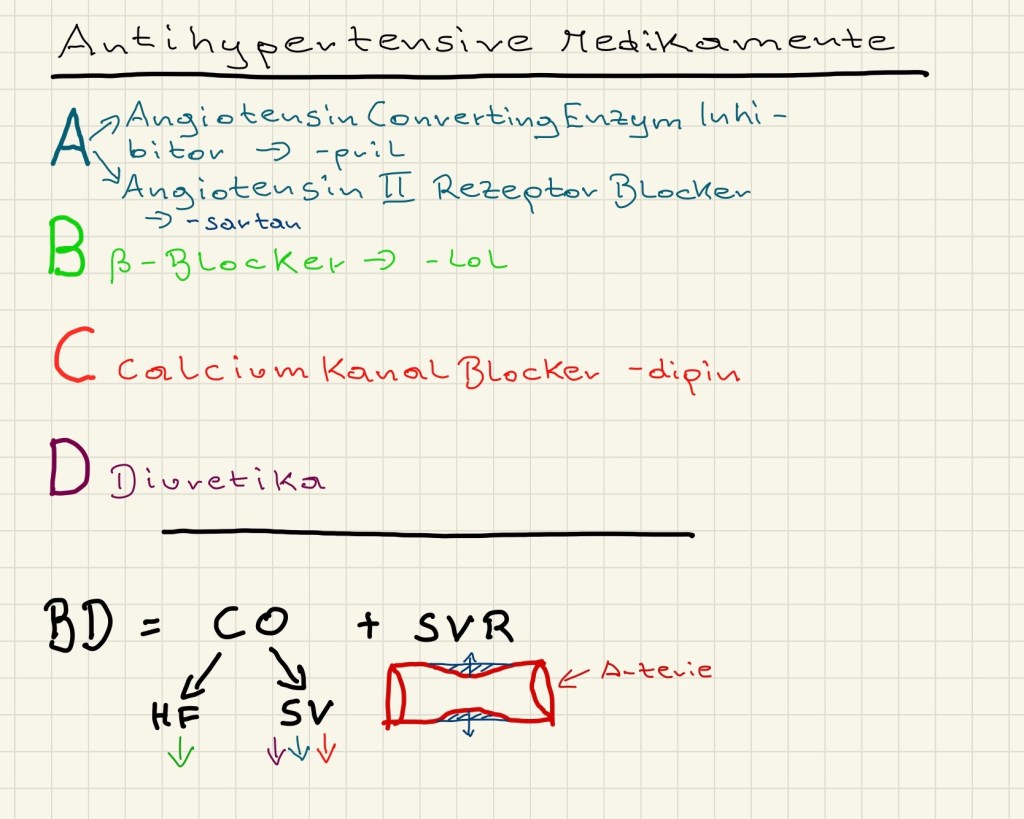 Antihypertensive Medikamente
A Angiotensin Converting Enzym Inhi-
bitor → -pril
Angiotensin II Rezeptor Blocker
→ -sartan
B β-Blocker → -LoL
C Calcium Kanal Blocker -dipin
D Diuretika
BD = CO + SVR
Arterie
HF SV